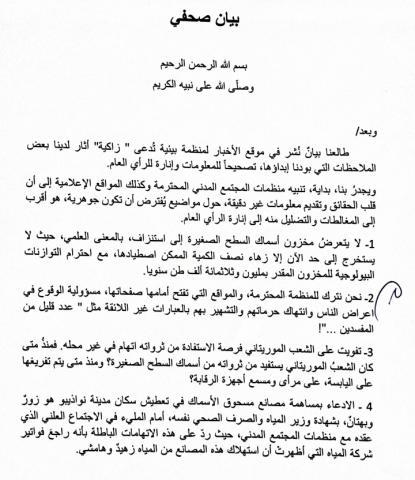 بيان صحفي
بسم الله الرحمن الرحيم
وصلّى الله على نبيه الكريم
وبعد/
طالعنا بيانٌ نُشر في موقع الأخبار لمنظمة بيئية تُدعى " زاكية" أثار لدينا بعض
الملاحظات التي بودنا إبداؤها، تصحيحاً للمعلومات وإنارة للرأي العام.
ويجدرُ بنا، بداية، تنبيه منظمات المجتمع المدني المحترمة وكذلك المواقع الإعلامية إلى أن
قلب الحقائق وتقديم معلومات غير دقيقة، حول مواضيع يُفترض أن تكون جوهرية، هو أقرب
إلى المغالطات والتضليل منه إلى إنارة الرأي العام.
1- لا يتعرضُ مخزون أسماك السطح الصغيرة إلى استنزاف، بالمعنى العلمي، حيث لا
يستخرج إلى حد الآن إلا زهاء نصف الكمية الممكن اصطيادها، مع احترام التوازنات
البيولوجية للمخزون المقدر بمليون وثلاثمائة ألف طن سنويا.
2- نحن نترك للمنظمة المحترمة، والمواقع التي تفتح أمامها صفحاتها، مسؤولية الوقوع في
اعراض الناس وانتهاك حرماتهم والتشهير بهم بالعبارات غير اللائقة مثل " عدد قليل من
المفسدين ..."!
3- تفويت على الشعب الموريتاني فرصة الاستفادة من ثرواته اتهام في غير محله. فمنذُ متى
كان الشعبُ الموريتاني يستفيد من ثرواته من أسماك السطح الصغيرة؟ ومنذ متى يتم تفريغها
على اليابسة، على مرأى ومسمع أجهزة الرقابة؟
4 - الادعاء بمساهمة مصانع مسحوق الأسماك في تعطيش سكان مدينة نواذيبو هو زورٌ
وبهتانٌ، بشهادة وزير المياه والصرف الصحي نفسه، أمام المليء في الاجتماع العلني الذي
عقده مع منظمات المجتمع المدني، حيث ردّ على هذه الاتهامات الباطلة بأنه راجعَ فواتير
شركة المياه التي أظهرتْ أن استهلاك هذه المصانع من المياه زهيدٌ وهامشي.